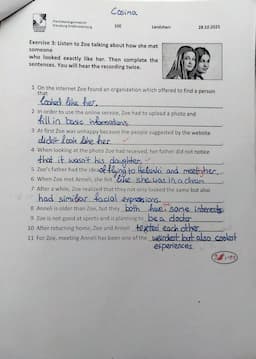 Cosima
10E
Landsherr
28.10.2021
Exercise 3: Listen to Zoe talking about how she met
someone
who looked exactly like her. Then complete the
sentences. You will hear the recording twice.
1 On the internet Zoe found an organization which offered to find a person
that
looked like her.
2 In order to use the online service, Zoe had to upload a photo and
fill in basic informations.
3 At first Zoe was unhappy because the people suggested by the website
didn't look like her.
4 When looking at the photo Zoe had received, her father did not notice
that it wasn't his daughter.
5 Zoe's father had the idea of flying to Helsinki and meet her.
6 When Zoe met Anneli, she felt like she was in a dream.
7 After a while, Zoe realized that they not only looked the same but also
had similar facial expressions.
8 Anneli is older than Zoe, but they both have some interests
9 Zoe is not good at sports and is planning to be a doctor
10 After returning home, Zoe and Anneli texted each other.
11 For Zoe, meeting Anneli has been one of the weirdest but also coolest
experiences.